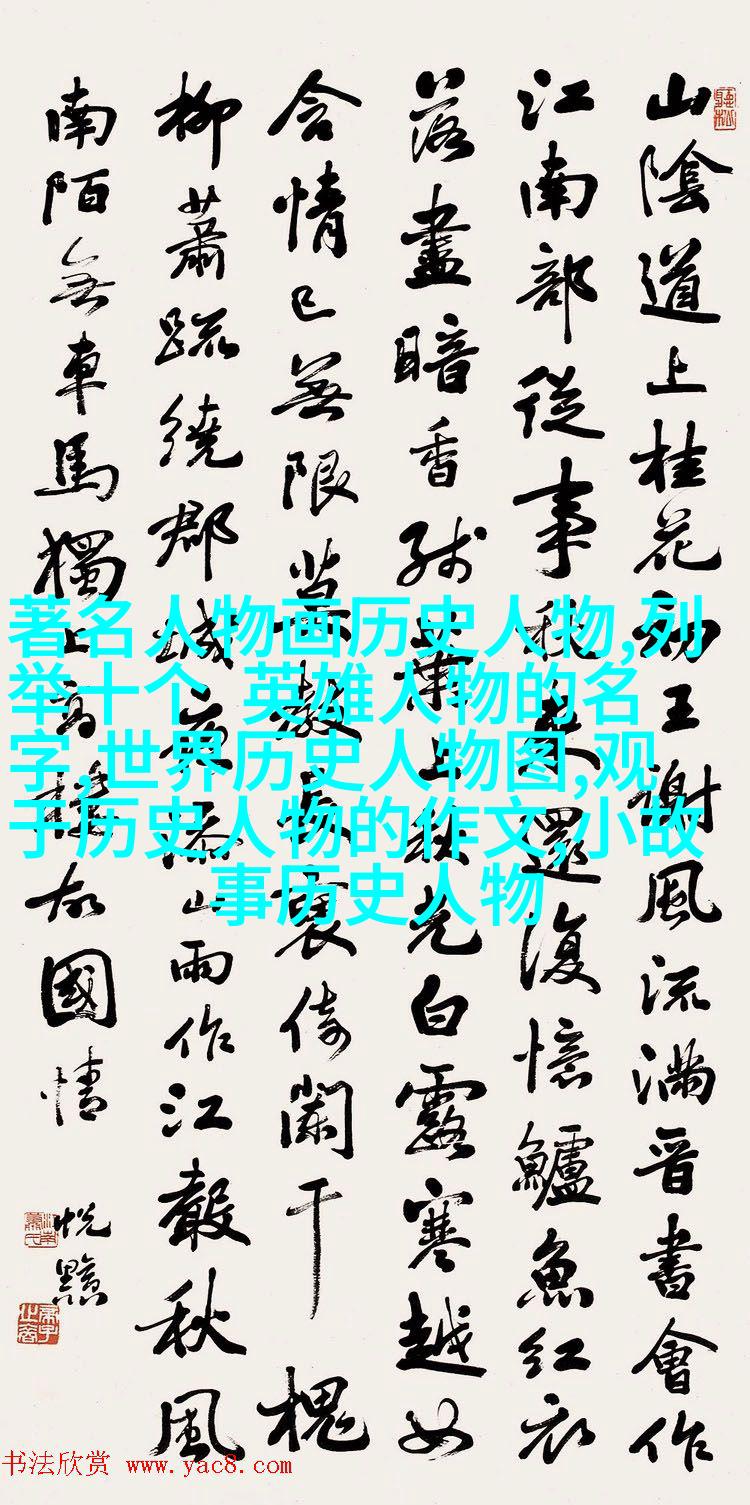 山陰道上桂花初王謝風流滿晉書會作
江南部從事秋來還復憶鱸魚紅衣
落盡暗香殘葉上秋光白露寒越女
含情已無限莫教長褎倚闌干 槐
柳蕭疏繞郡城夜添山雨作江聲秋風
南陌無車馬獨上高樓故國情
著名人物画历史人物,列
举十个 英雄人物的名
字,世界历史人物图,观
于历史人物的作文,小故
事历史人物
书法欣赏 www.yac8.com